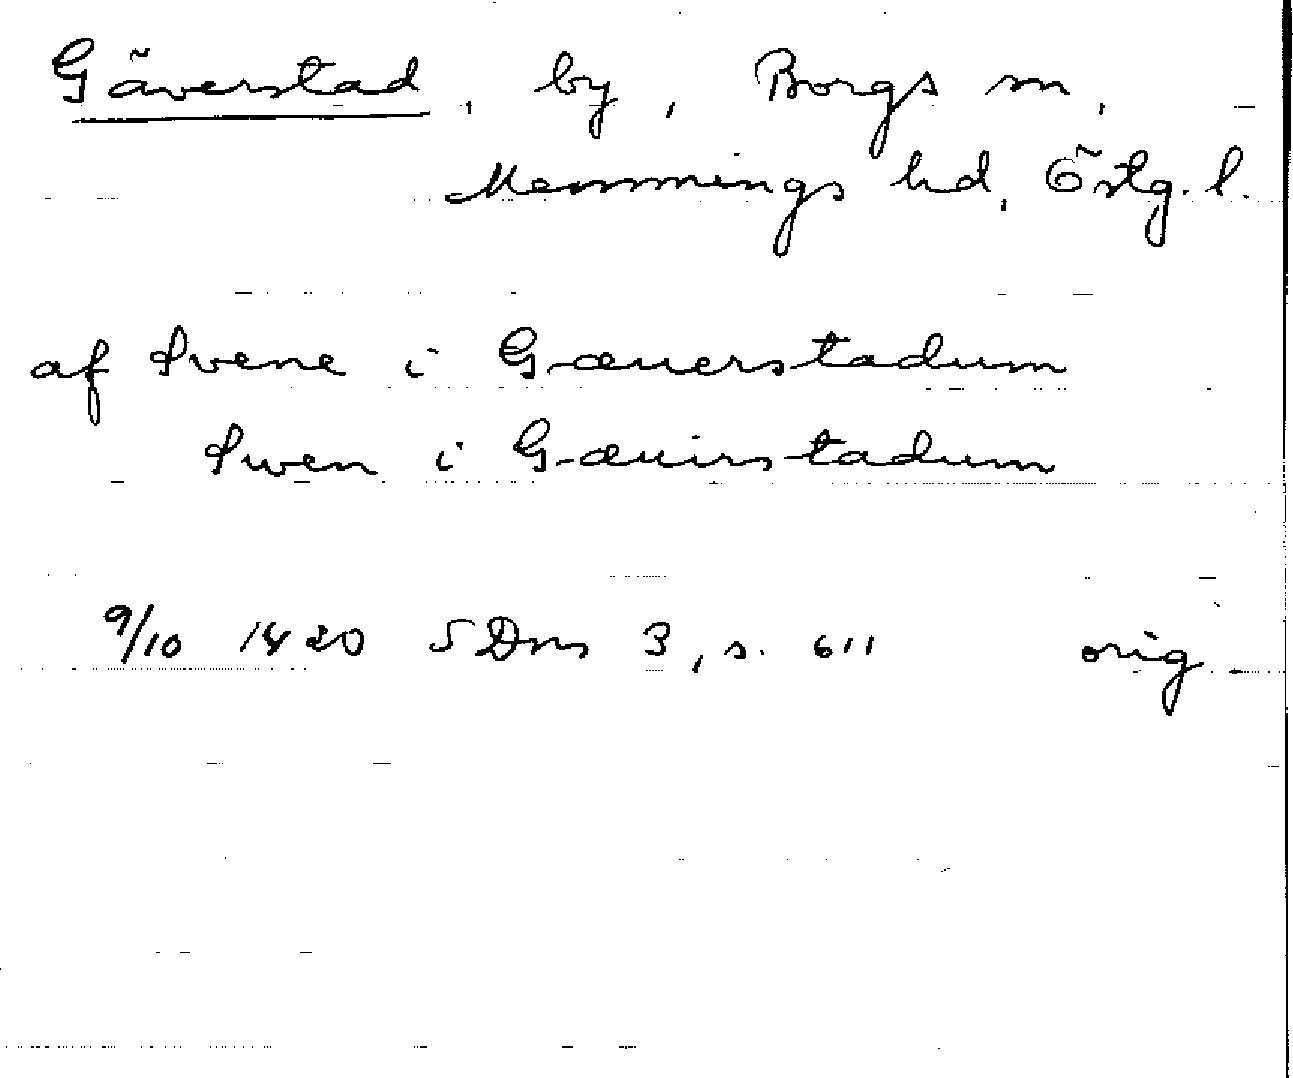 Gäverstad, by, Borgs sn,
Memmings hd, Östg. l.
af Svene i Gæuerstadum
Swen i Gæuirstadum
9/10 1420 SDns 3, s. 611 orig